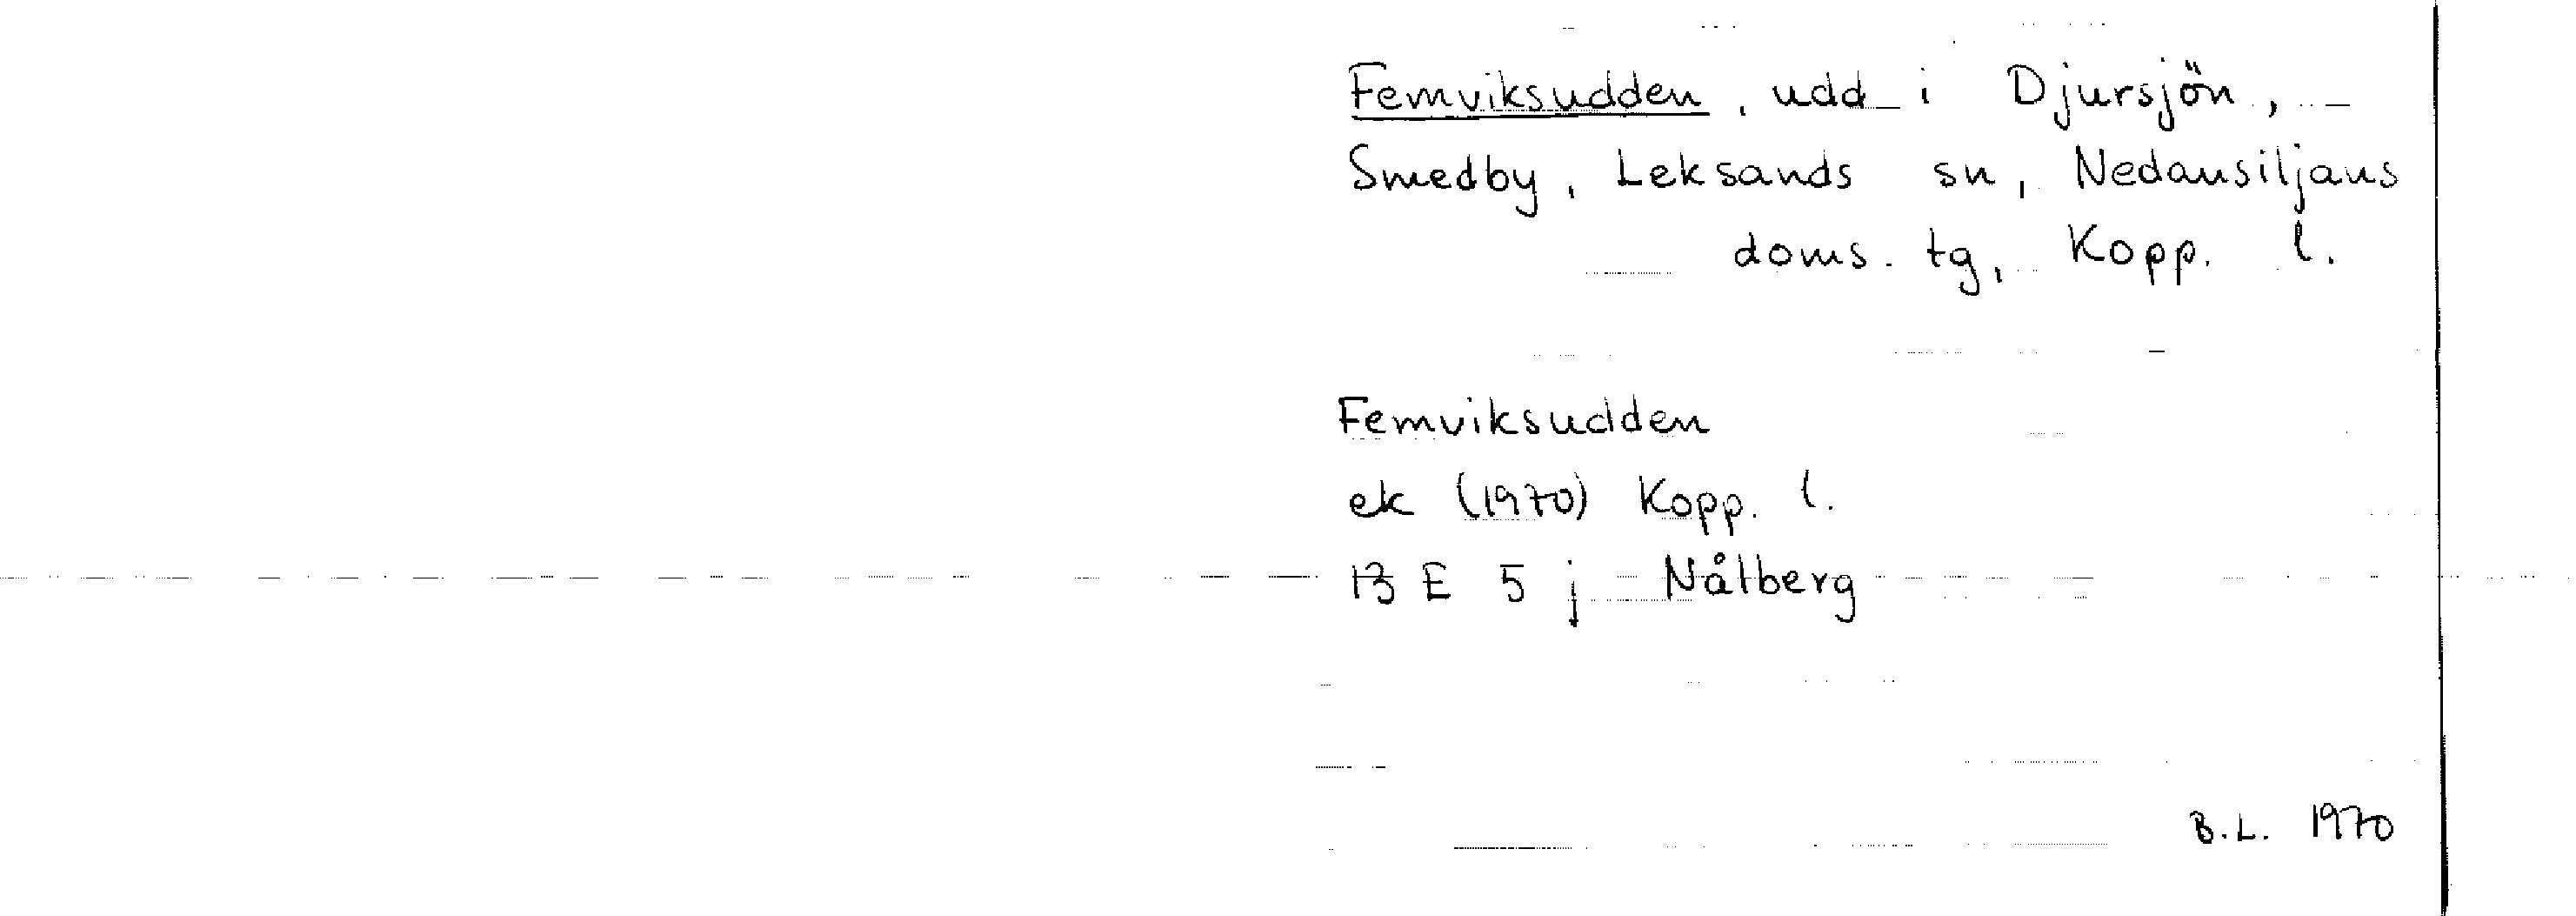 Femviksudden, udd i Djursjön,
Smedby, Leksands sn, Nedansiljans
doms. tg, Kopp. l.
Femviksudden
ek (1970) Kopp. l.
13 E 5 j Nålberg
B.L. 1970